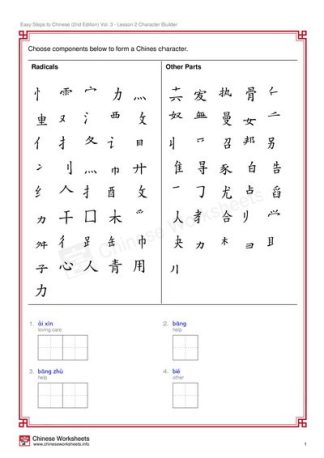 Easy Steps to Chinese (2nd Edition) Vol. 3 - Lesson 2 Character Builder
Choose components below to form a Chines character.
Radicals Other Parts
忄 宀 力 灬 执 骨
又 氵 西 攵 奴 曼 女 二
亻 扌 夂 讠 目 召 邦 另
冫 刂 灬 巾 廾 隹 寻 豕 白 告
纟 人 扌 酉 攵 一 尤 占 舀
力 干 囗 木 人 孝 合 刂
舛 彳 缶 巾 夬 力 木
子 心 人 青 用
力
Chinese Worksheets
1. ài xīn
loving care
2. bāng
help
3. bāng zhù
help
4. bié
other
Chinese Worksheets
www.chineseworksheets.info
1